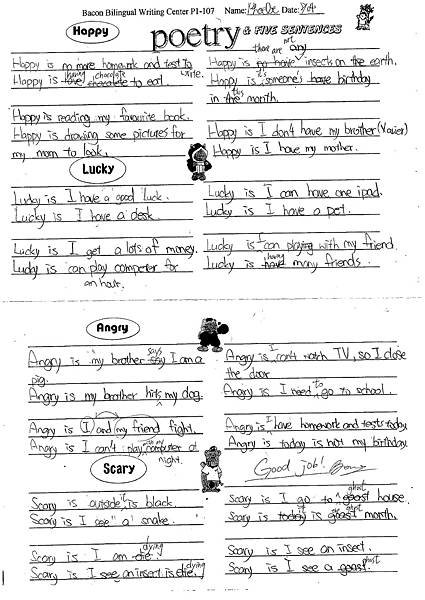 Bacon Bilingual Writing Center P1-107 Name: Date:
Happy
poetry & FIVE SENTENCES
Happy is no more homework and test to write.
Happy is having chocolate to eat.
Happy is reading my favourite book.
Happy is drawing some pictures for
my mom to look.
there are not any
Happy is no have insects on the earth.
Happy is it's someone's have birthday
in the this month.
Happy is I don't have my brother (Xavier)
Happy is I have my mother.
Lucky
Lucky is I have a good luck.
Lucky is I have a desk.
Lucky is I get a lots of money.
Lucky is can play computer for
an hour.
Lucky is I can have one ipad.
Lucky is I have a pet.
Lucky is I can playing with my friend.
Lucky is having have many friends.
Angry
Angry is my brother says say I am a
pig.
Angry is my brother hits my dog.
Angry is I and my friend fight.
Angry is I can't play computer at
night.
Angry is I can't watch TV, so I close
the door
Angry is I need to go to school.
Angry is I have homework and tests today.
Angry is today is not my birthday.
Good job!
Scary
Scary is outside it is black.
Scary is I see "a" snake.
Scary is I am dying die.
Scary is I see an insect is dying die.
Scary is I go to ghost goast house.
Scary is today is ghost goast month.
Scary is I see an insect.
Scary is I see a ghost goast.